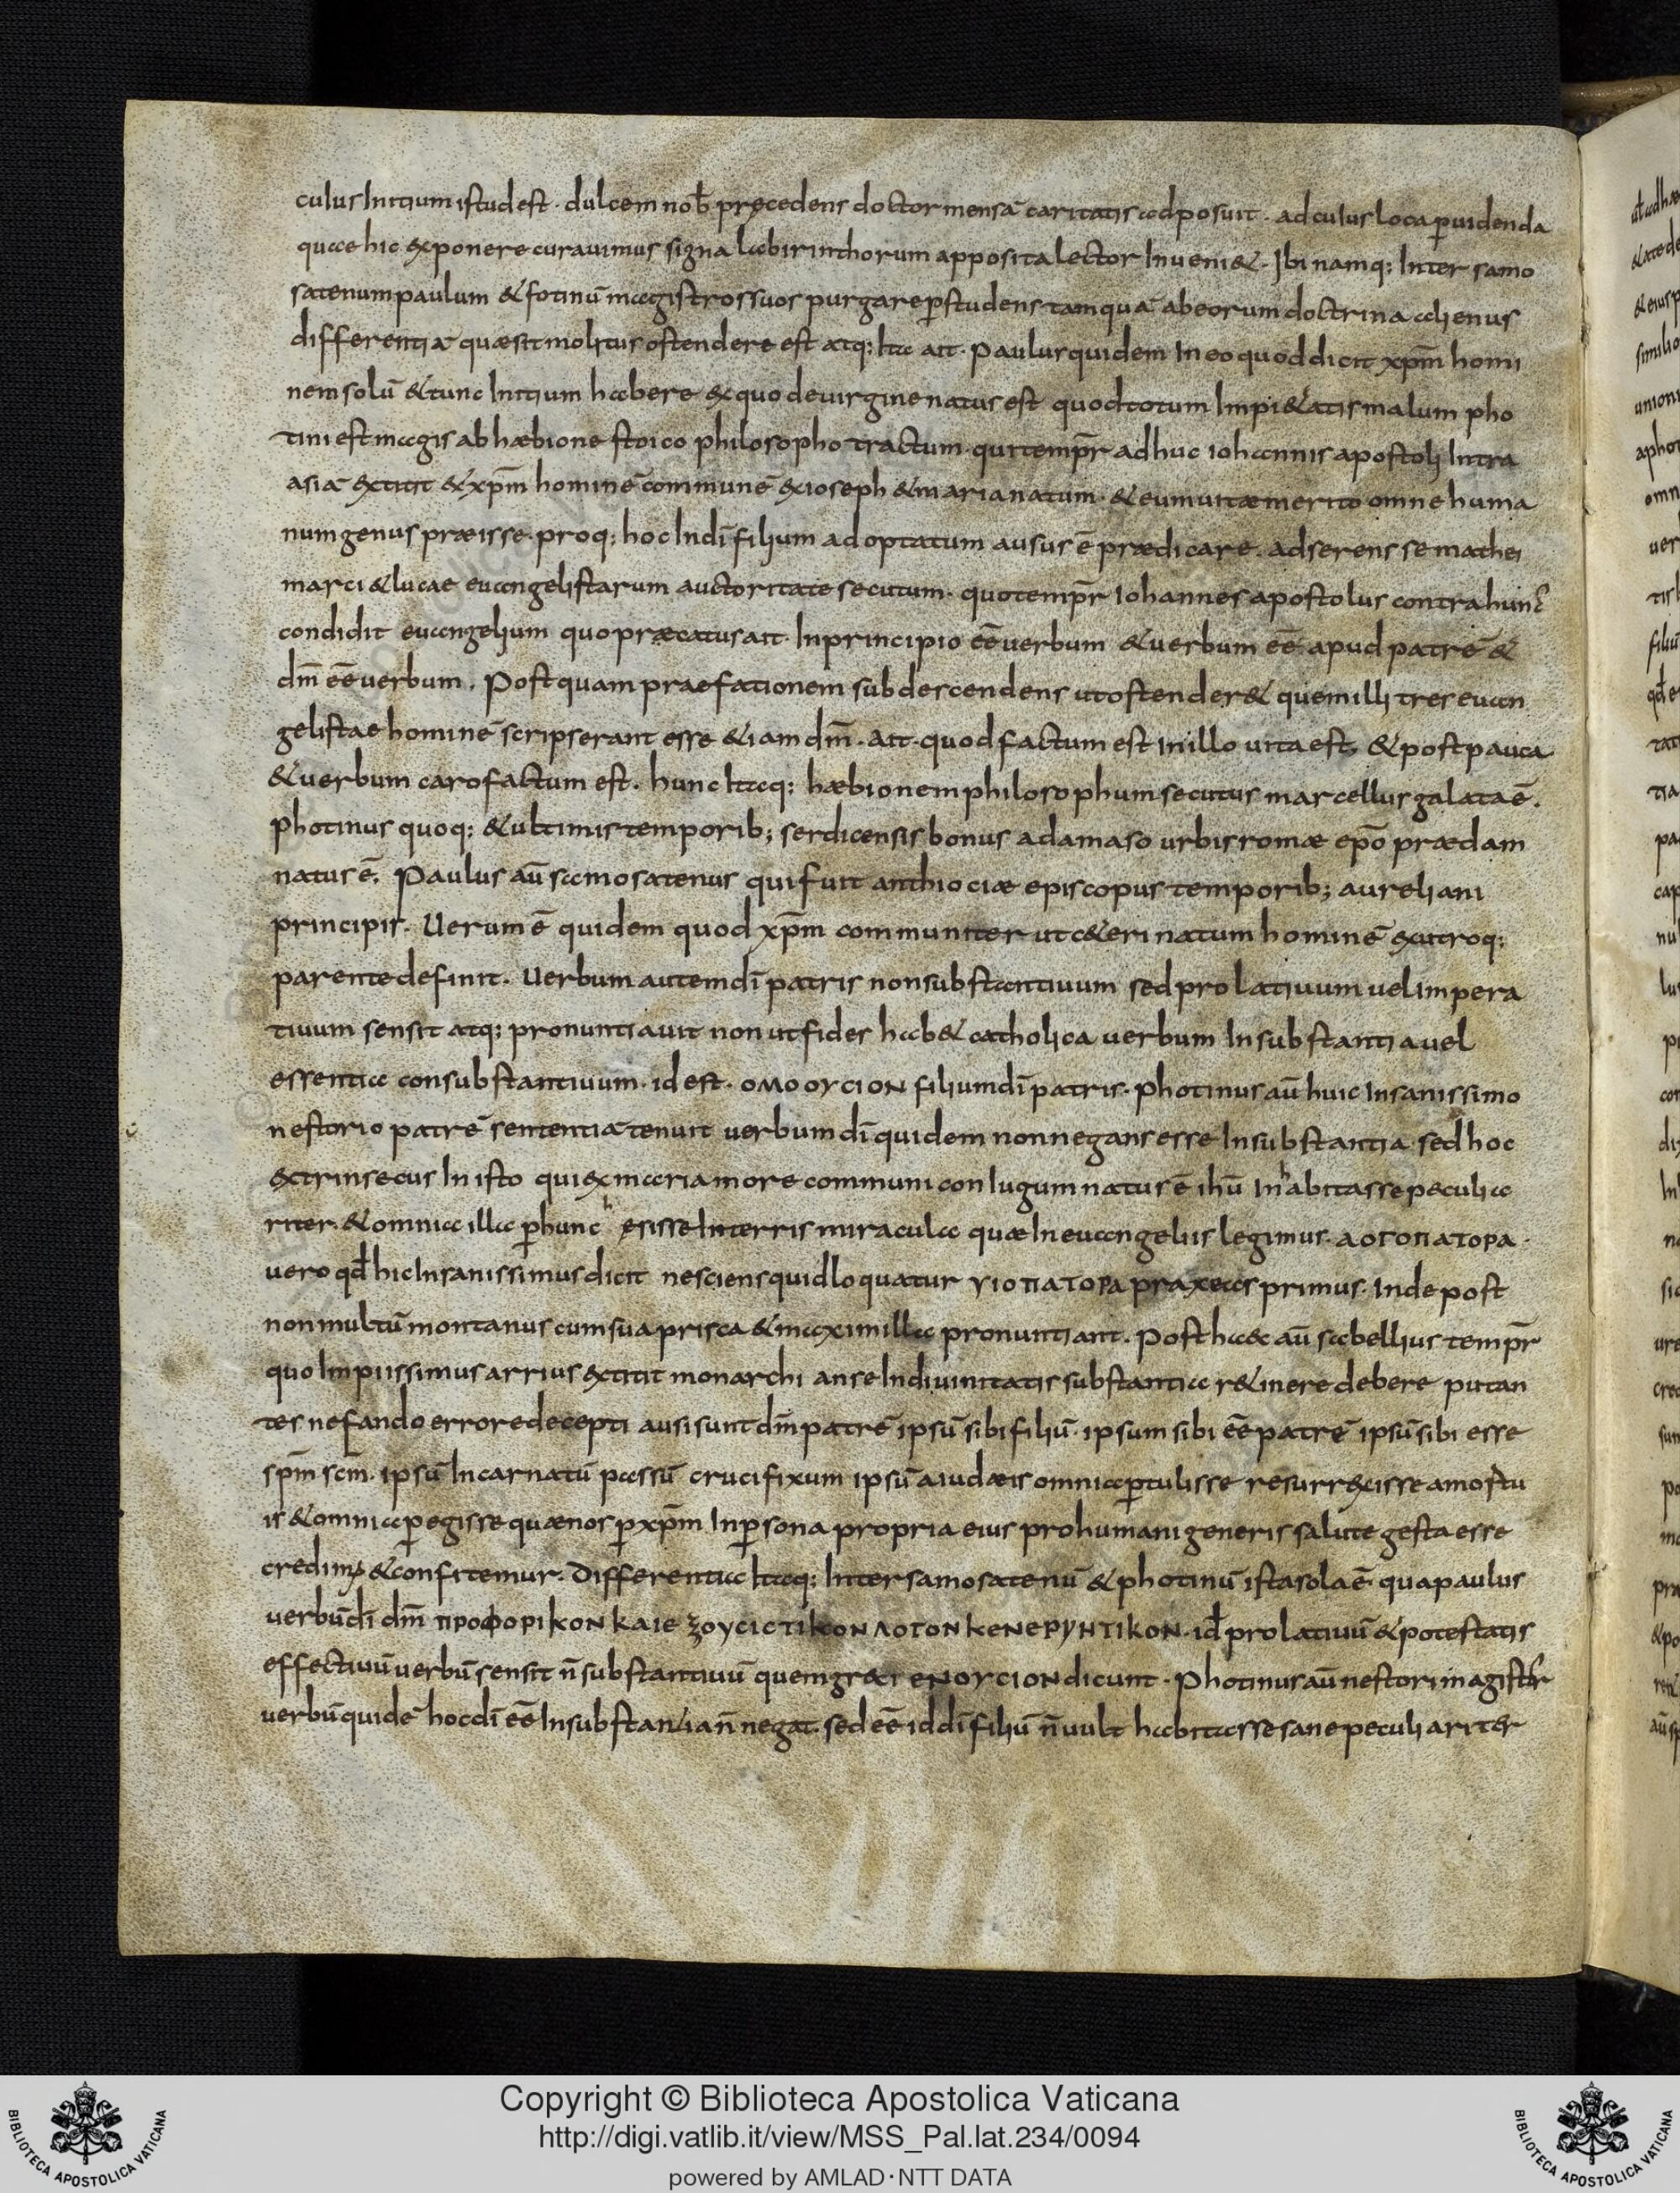 cuius Initium istud est · dulcem nob̄ pręcedens doctor mensā caritatis adposuit · ad cuius loca puidenda
quae hic exponere curauimus signa labirinthorum apposita lector Inueni& · Ibi namq; Inter samo
satenum paulum & fotinū magistros suos purgare se studens tamquā ab eorum doctrina alienus
differentiā quæ sit molitus ostendere est atq; Ita ait · Paulus quidem In eo quod dicit xp̄m homi
nem solū & tunc Initium habere ex quo de uirgine natus est quod totum Impi&atis malum pho
tini est magis ab hæbione stoico philosopho tractum · qui temp̄r adhuc iohannis apostoli Intra
asiā extitit & xp̄m hominē communē ex ioseph & maria natum · & eum uitæ merito omne huma
num genus præisse · proq; hoc In dī filium adoptatum ausus ē prædicare · adserens se mathei
marci & lucae euangelistarum auctoritate secutum · quo temp̄r Iohannes apostolus contra hunc
condidit euangelium quo præcatus ait · In principio eē uerbum & uerbum eē apud patrē &
dm̄ eē uerbum · Post quam praefationem subdescendens ut ostender& quem illi tres euan
gelistae hominē scripserant esse & iam dm̄ · ait · quod factum est In illo uita est, & post pauca
& uerbum caro factum est · hunc Itaq; hæbionem philosophum secutus marcellus galata ē ·
photinus quoq; & ultimis temporib; serdicensis bonus a damaso urbis romæ epō prædam
natus ē · Paulus aū samosatenus qui fuit anthiociæ episcopus temporib; aureliani
principis · Uerum ē quidem quod xp̄m communiter ut c&eri natum hominē ex utroq;
parente definit · Uerbum autem dī patris non substantiuum sed prolatiuum uel impera
tiuum sensit atq; pronuntiauit non ut fides hab& catholica uerbum In substantia uel
essentia consubstantiuum · id est · ΟΜΟΟΥCΙΟΝ filium dī patris · Photinus aū huic Insanissimo
nestorio patrē sententiā tenuit uerbum dī quidem non negans esse In substantia sed hoc
extrinsecus In isto qui ex maria more communi coniugum natus ē ihū Inhabitasse peculia
riter & omnia illa p hunc gesisse In terris miracula quæ In euangeliis legimus · ΛΟΓΟΠΑΤΟΡΑ ·
uero qđ hic Insanissimus dicit nesciens quid loquatur ΥΙΟΠΑΤΟΡΑ praxeas primus · Inde post
non multū montanus cum sua prisca & maximilla pronuntiant · Post haec aū sabellius temp̄r
quo Impiissimus arrius extitit monarchi an se In diuinitatis substantia r&inere debere putan
tes nefando errore decepti ausi sunt dm̄ patrē ipsū sibi filiū · ipsum sibi eē patrē ipsū sibi esse
spm̄ scm̄ · ipsū Incarnatū passū crucifixum ipsū a iudæis omnia ptulisse resurrexisse a mortu
is & omnia pegisse quæ nos p xp̄m In psona propria eius pro humani generis salute gesta esse
credimus & confitemur · Differentia Itaq; Inter samosatenū & photinū ista sola ē qua paulus
uerbū dī dm̄ ΠΡΟΦΟΡΙΚΟΝ ΚΑΙ Ε ΞΟΥCΙCΤΙΚΟΝ ΛΟΓΟΝ ΚΕΝΕΡΓΗΤΙΚΟΝ · iđ prolatiuū & potestatis
effectiuū uerbū sensit n̄ substantiuū quem greci ΕΝΟΥCΙΟΝ dicunt · Photinus aū nestorii magister
uerbū quidē hoc dī eē In substantia n̄ negat · sed eē id dī filiū n̄ uult habitasse sane peculiariter
Copyright © Biblioteca Apostolica Vaticana
http://digi.vatlib.it/view/MSS_Pal.lat.234/0094
powered by AMLAD·NTT DATA
BIBLIOTECA APOSTOLICA VATICANA
BIBLIOTECA APOSTOLICA VATICANA